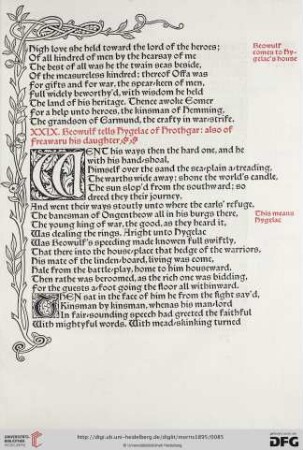 High love she held toward the lord of the heroes;
Of all kindred of men by the hearsay of me
The best of all was he the twain seas beside,
Of the measureless kindred: thereof Offa was
For gifts and for war, the spear-keen of men,
Full widely beworthy'd, with wisdom he held
The land of his heritage. Thence awoke Eomer
For a help unto heroes, the kinsman of Hemming,
The grandson of Garmund, the crafty in war-strife.
Beowulf comes to Hygelac's house
XXIX. Beowulf tells Hygelac of Hrothgar: also of
Freawaru his daughter.
WENT his ways then the hard one, and he
with his hand-shoal,
Himself over the sand the sea-plain a-treading,
The warths wide away; shone the world's candle,
The sun slop'd from the southward; so
dreed they their journey,
And went their ways stoutly unto where the earls' refuge,
The banesman of Ongentheow all in his burgs there,
The young king of war, the good, as they heard it,
Was dealing the rings. Aright unto Hygelac
Was Beowulf's speeding made knowen full swiftly,
That there into the house-place that hedge of the warriors,
His mate of the linden-board, living was come,
Hale from the battle-play, home to him houseward.
Then rathe was beroomed, as the rich one was bidding,
For the guests a-foot going the floor all withinward.
THEN sat in the face of him he from the fight sav'd,
Kinsman by kinsman, whenas his man-lord
In fair-sounding speech had greeted the faithful
With mightyful words. With mead-skinking turned
This means Hygelac
UNIVERSITÄTS-
BIBLIOTHEK
HEIDELBERG
http://digi.ub.uni-heidelberg.de/diglit/morris1895/0085
© Universitätsbibliothek Heidelberg
DFG